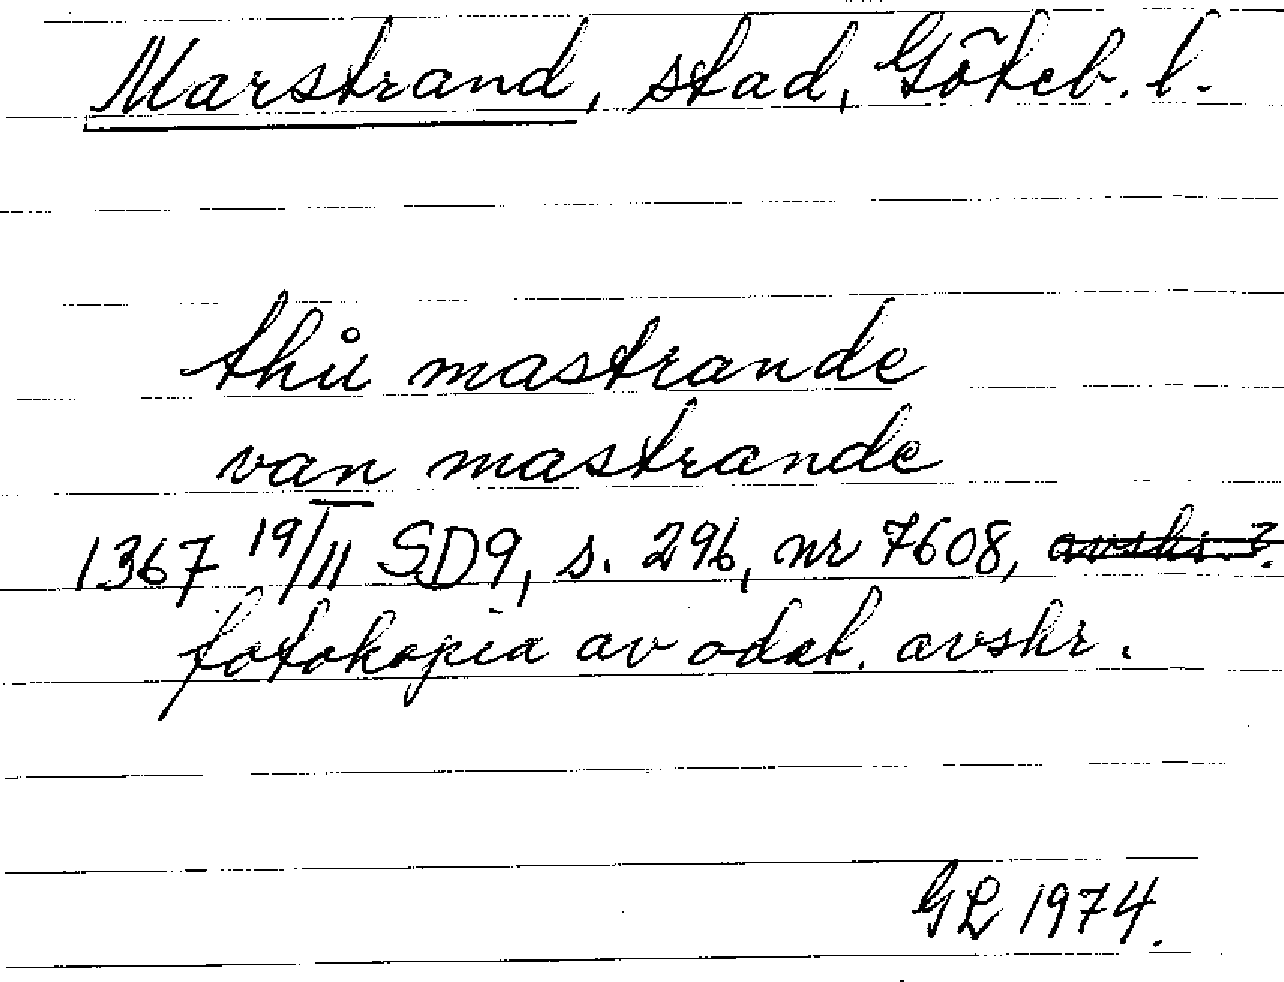 Marstrand, stad, Göteb. l.
thů mastrande
van mastrande
1367 19/11 SD9, s. 296, nr 7608, avskr.?
fotokopia av odat. avskr.
GL 1974.